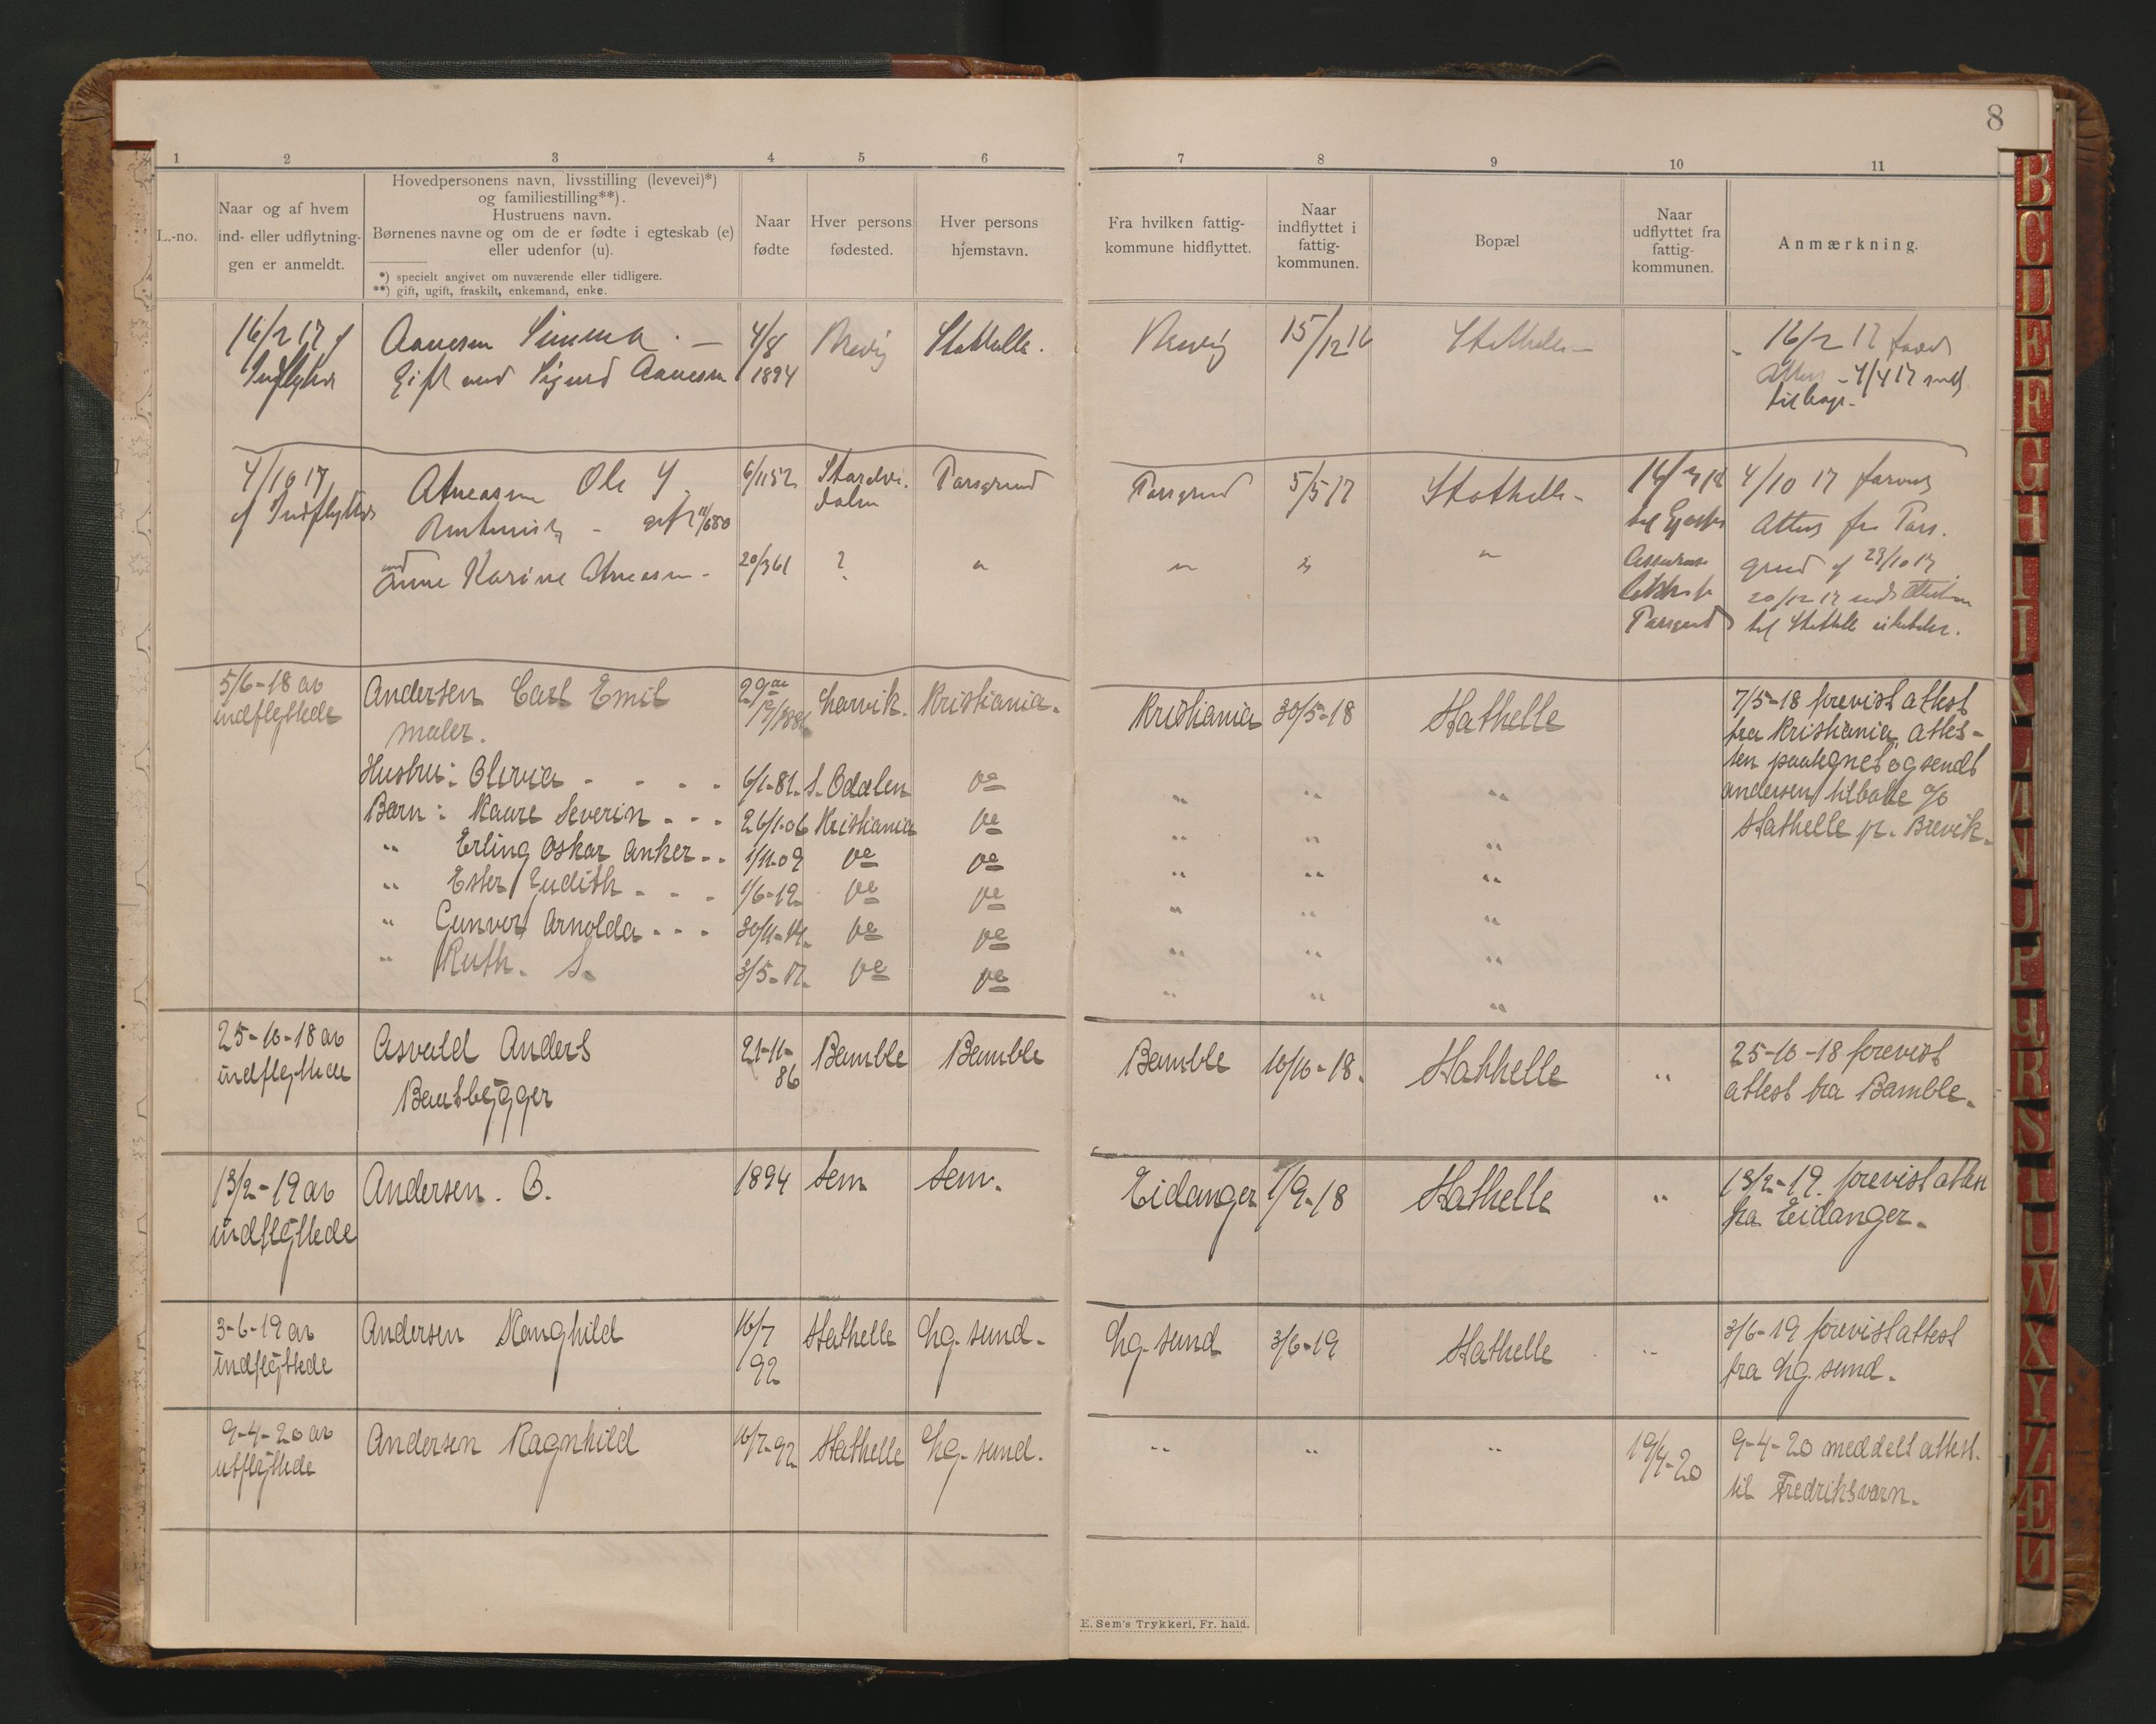 8
1 2 3 4 5 6 7 8 9 10 11
L.-no.
Naar og af hvem
ind- eller udflytnin-
gen er anmeldt.
Hovedpersonens navn, livsstilling (levevei)*)
og familiestilling**).
Hustruens navn.
Børnenes navne og om de er fødte i egteskab (e)
eller udenfor (u).
*) specielt angivet om nuværende eller tidligere.
**) gift, ugift, fraskilt, enkemand, enke.
Naar
fødte
Hver persons
fødested.
Hver persons
hjemstavn.
Fra hvilken fattig-
kommune hidflyttet.
Naar
indflyttet i
fattig-
kommunen.
Bopæl
Naar
udflyttet fra
fattig-
kommunen.
Anmærkning.
16/2 17 f
Indflytter
Aanesen
Gift med Sigurd Aanesen
4/8
1894
Brevig
Stathelle.
Brevig
15/12 16
Stathelle
16/2 17
4/4 17
tilbage
4/10 17
f Indflytter
Ole
gift
6/1 52
Porsgrund
Porsgrund
5/5 17
Stathelle
4/10 17
Attest fra Pors.
grund f 23/10 17
20/12 17
til Stathelle
Porsgrund
Anne Karine
20/3 61
?
5/6-18 av
indflyttede
Andersen Carl Emil
maler.
Larvik.
Kristiania.
Kristiania
30/5-18
Stathelle
7/5-18 forevist attest
fra Kristiania, attes-
ten paategnet og sendt
Andersen tilbake c/o
Stathelle pr. Brevik.
Hustru: Olivia - - - - 6/1-81. S. Odalen do " " "
Barn: Kaare Severin - - - 26/1-06 Kristiania do " " "
" Erling Oskar Anker - - 1/11-09 do do " " "
" Ester Judith - - - 1/6-12 do do " " "
" Gunver Arnolda - - - 30/11-14. do do " " "
" Ruth. S. 3/5-17. do do " " "
25-10-18 av
indflyttede
Asvald Anders
Baatbygger
21-11-
86
Bamble
Bamble
Bamble
10/10-18.
Stathelle
"
25-10-18 forevist
attest fra Bamble.
13/2-19 av
indflyttede
Andersen. O.
1894
Sem
Sem.
Eidanger
1/9-18
Stathelle
"
13/2-19. forevist attest
fra Eidanger.
3-6-19 av
indflyttede
Andersen Ranghild
16/7
92
Stathelle
Lg. sund.
Lg. sund
3/6-19
Stathelle
"
3/6-19 forevist attest
fra Lg. sund.
9-4-20 av
utflyttede
Andersen Ragnhild
16/7-92
Stathelle
Lg. sund.
"
"
"
19/4-20
9-4-20 meddelt attest.
til Fredriksvarn.
E. Sem's Trykkeri, Fr. hald.
B
C
D
E
F
G
H
I
J
K
L
M
N
O
P
Q
R
S
T
U
W
X
Y
Z
Æ
Ø